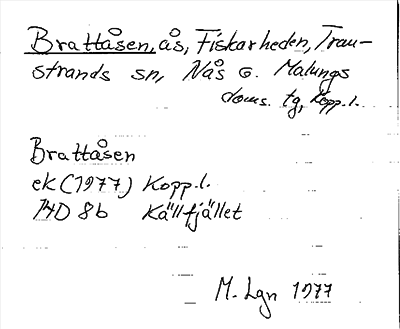 Brattåsen, ås, Fiskarheden, Tran-
strands sn, Nås o. Malungs
doms. tg, Kopp.l.
Brattåsen
ek (1977) Kopp.l.
14D 8b Källfjället
M. Lgn 1977